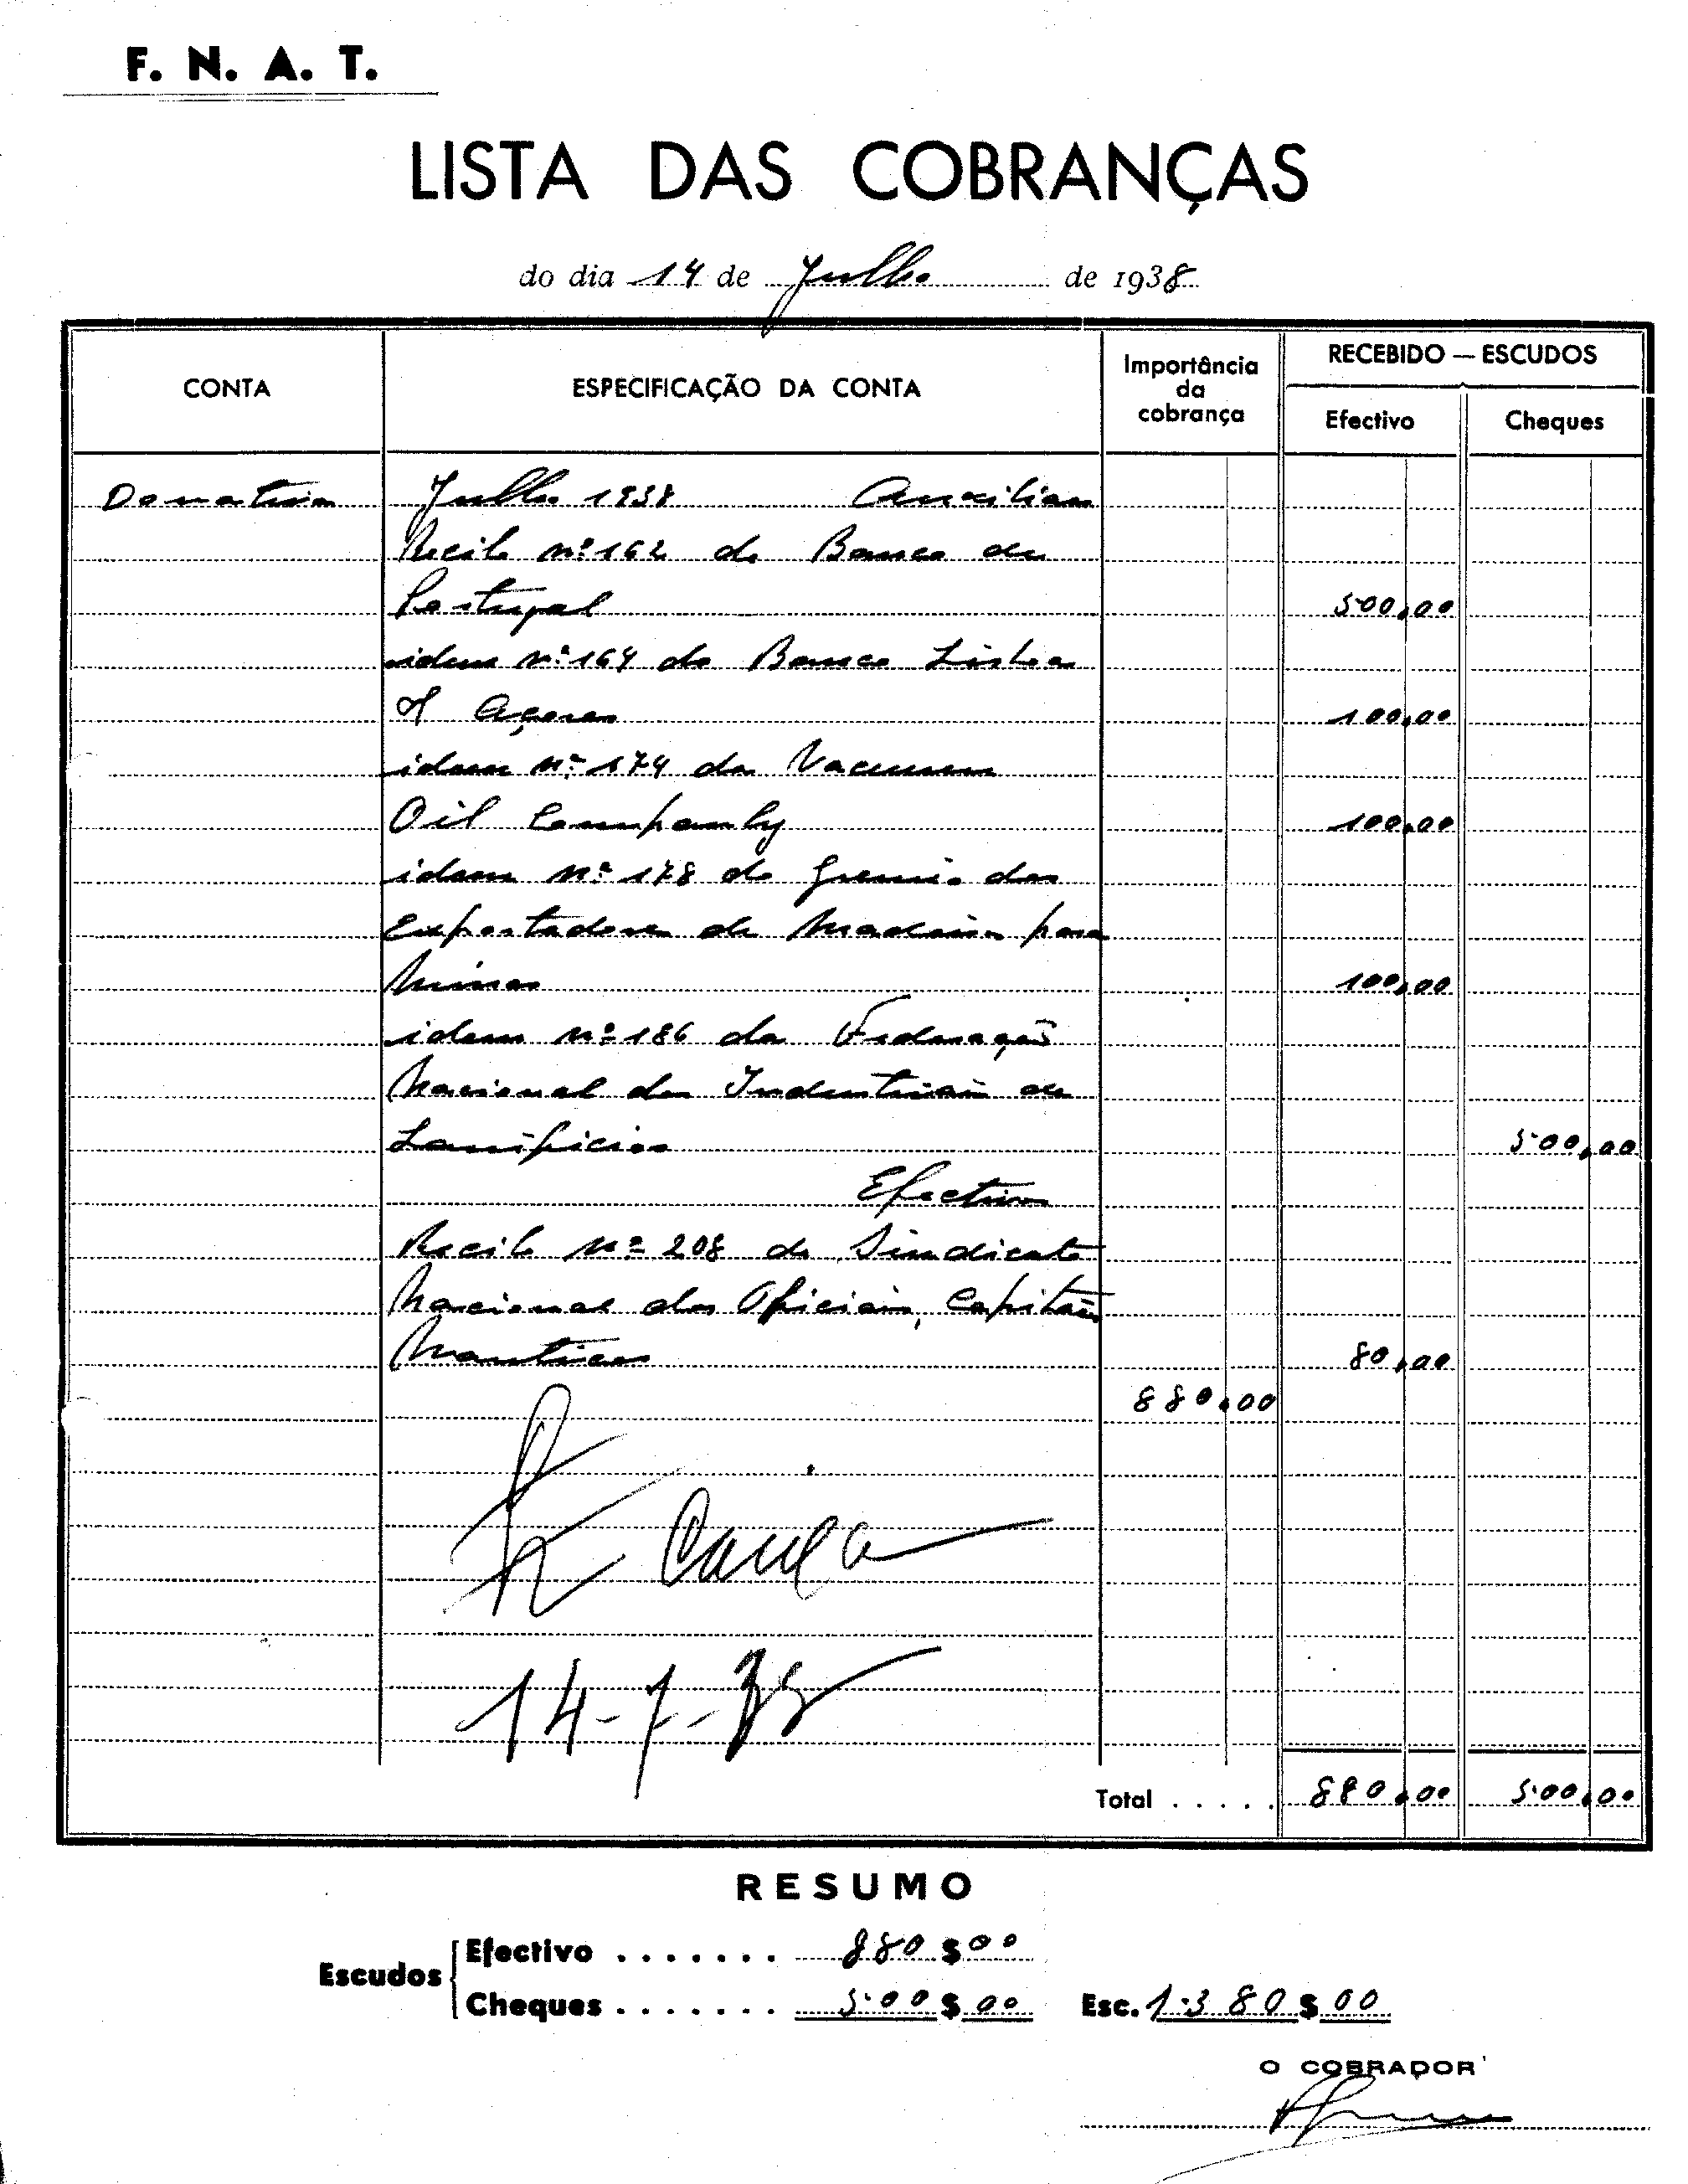 F. N. A. T.
LISTA DAS COBRANÇAS
do dia 14 de Julho de 1938
CONTA
ESPECIFICAÇÃO DA CONTA
Importância
da
cobrança
RECEBIDO — ESCUDOS
Efectivo
Cheques
Donativos Julho 1938 Auxiliares
Recibo nº 162 do Banco de
Portugal 500,00
idem nº 164 do Banco Lisboa
& Açores 100,00
idem nº 174 da Vacuum
Oil Company 100,00
idem nº 178 do Gremio dos
Exportadores de Madeiras para
Minas 100,00
idem nº 186 da Federação
Nacional dos Industriais de
Lanificios 500,00
Efectivos
Recibo nº 208 do Sindicato
Nacional dos Oficiais, Capitães
Nauticos 80,00
880,00
14-7-38
Total . . . . . 880,00 500,00
RESUMO
Escudos
Efectivo . . . . . . . 880$00
Cheques . . . . . . . 500$00 Esc. 1.380$00
O COBRADOR